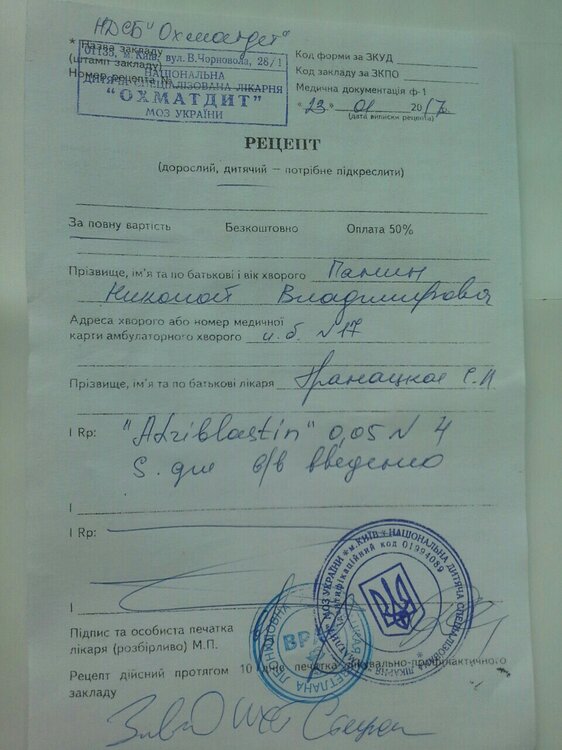 НДСБ "Охматдет"
* Назва закладу
01135, м. Київ, вул. В.Чорновола, 28/1
(штамп закладу)
НАЦІОНАЛЬНА
Номер рецепта №
ДИТЯЧА СПЕЦІАЛІЗОВАНА ЛІКАРНЯ
"ОХМАТДИТ"
МОЗ УКРАЇНИ
Код форми за ЗКУД
Код закладу за ЗКПО
Медична документація ф-1
"23" 01 2017
(дата виписки рецепта)
РЕЦЕПТ
(дорослий, дитячий – потрібне підкреслити)
За повну вартість Безкоштовно Оплата 50%
Прізвище, ім'я та по батькові і вік хворого Памин
Николай Владимирович
Адреса хворого або номер медичної
карти амбулаторного хворого и.б. N17
Прізвище, ім'я та по батькові лікаря
І Rp: "Adriblastin" 0,05 N 4
S. для в/в введению
І
І Rp:
І
Підпис та особиста печатка
лікаря (розбірливо) М.П.
Рецепт дійсний протягом 10 днів печатка лікувально-профілактичного
закладу
МОЗ УКРАЇНИ * м. КИЇВ * НАЦІОНАЛЬНА ДИТЯЧА СПЕЦІАЛІЗОВАНА ЛІКАРНЯ
Ідентифікаційний код 01994089
СВЕТЛАНА ЛЕОНИДОВНА